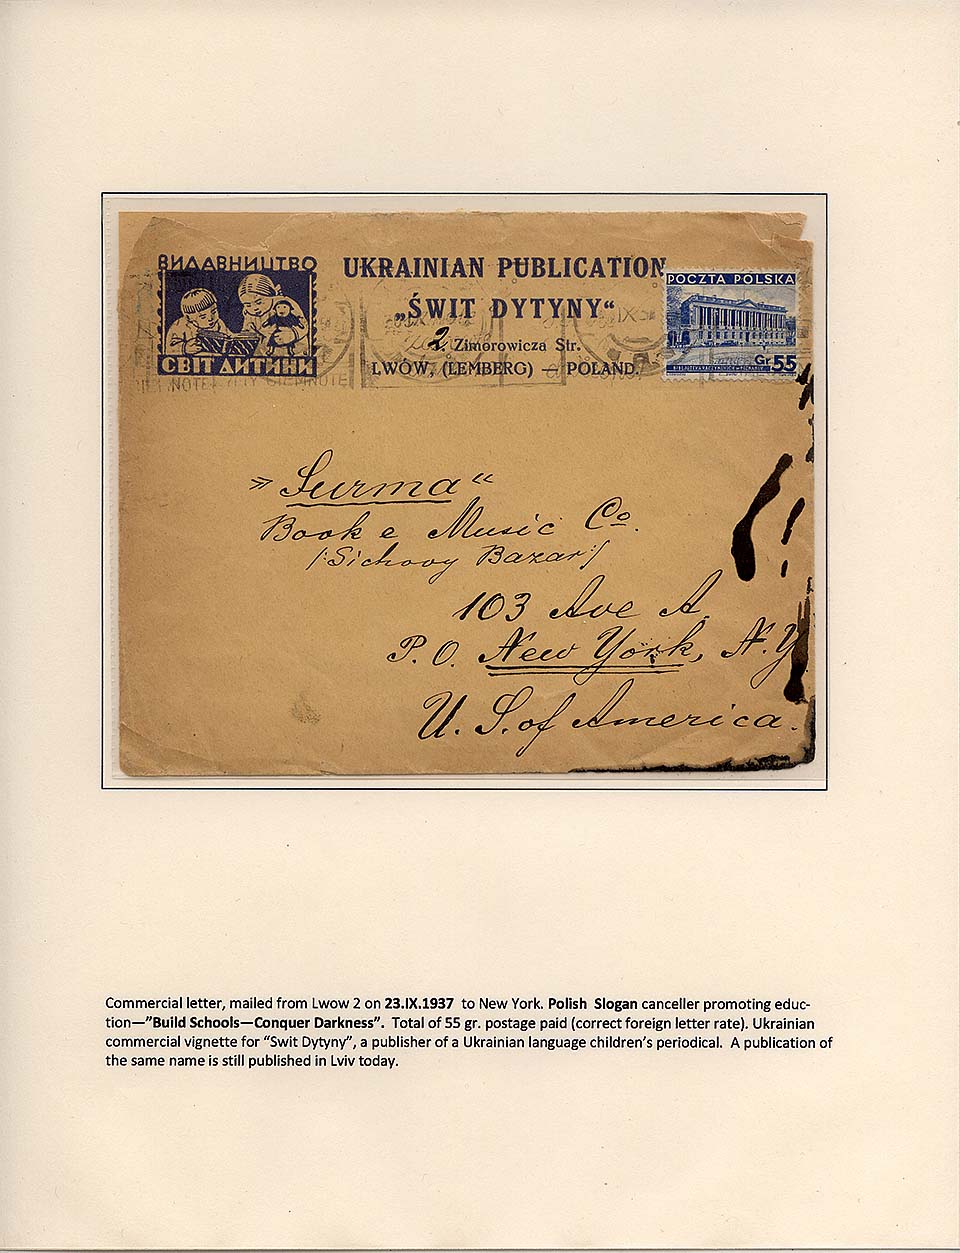 ВИДАВНИЦТВО
СВІТ ДИТИНИ
UKRAINIAN PUBLICATION
„ŚWIT DYTYNY“
2 Zimorowicza Str.
LWÓW, (LEMBERG) — POLAND.
POCZTA POLSKA
Gr. 55
»Surma“
Book e Music Co.
/:Sichovy Bazar:/
103 Ave A.
P. O. New York, N. Y.
U. S. of America.
Commercial letter, mailed from Lwow 2 on 23.IX.1937 to New York. Polish Slogan canceller promoting educ-
tion—”Build Schools—Conquer Darkness”. Total of 55 gr. postage paid (correct foreign letter rate). Ukrainian
commercial vignette for “Swit Dytyny”, a publisher of a Ukrainian language children’s periodical. A publication of
the same name is still published in Lviv today.